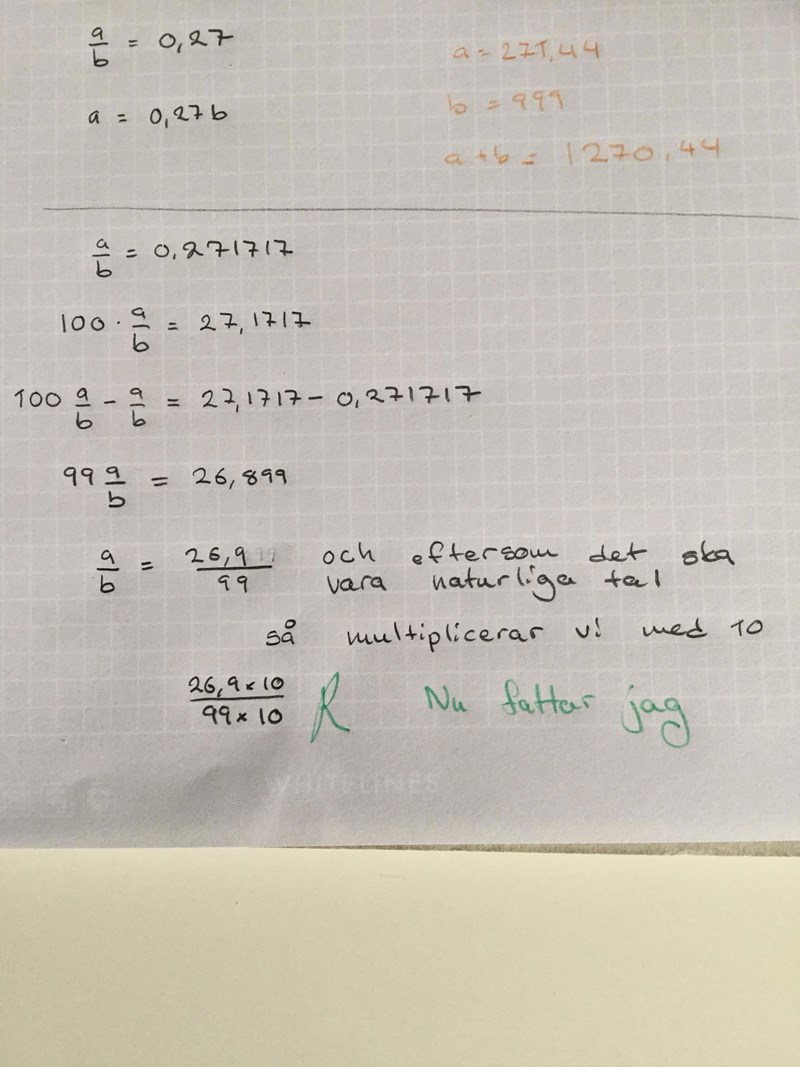 a/b = 0,27
a = 0,27b
a = 271,44
b = 999
a+b = 1270,44
a/b = 0,271717
100 · a/b = 27,1717
100 a/b - a/b = 27,1717 - 0,271717
99 a/b = 26,899
a/b = 26,9/99 och eftersom det ska
vara naturliga tal
så multiplicerar vi med 10
26,9×10/99×10 R Nu fattar jag
WHITELINES